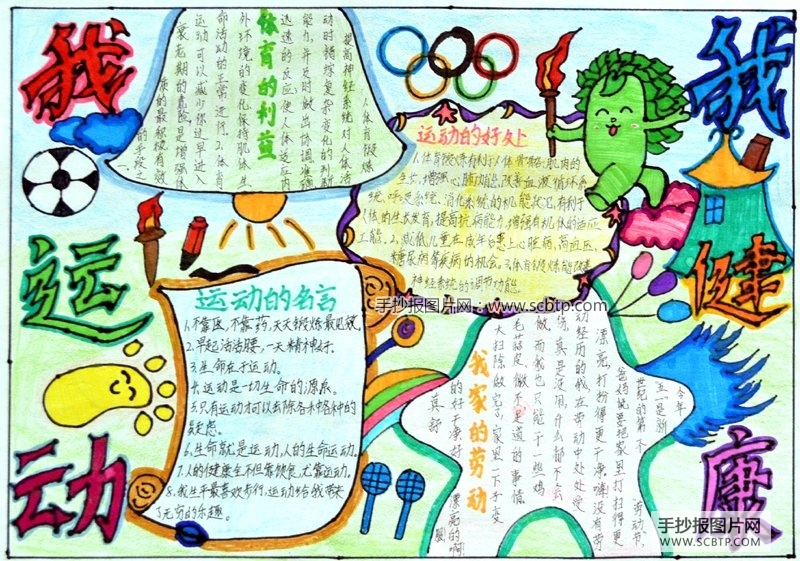 我
运
动
我
健
康
体育的利益
人体育锻炼
提高神经系统对人体活
动时错综复杂变化的判断
能力,并及时做出协调准确
迅速的反应使人体适应内
外环境的变化保持肌体生
命活动的正常进行。2.体育
运动可以减少你过早进入
衰老期的危险是增强体
质的最积极有效
的手段之
一。
运动的好处
1.体育锻炼有利于人体骨骼、肌肉的
生长,增强心肺功能,改善血液循环系
统、呼吸系统、消化系统的机能状况,有利于
人体的生长发育,提高抗病能力,增强有机体的适应
能。2.减低儿童在成年后患上心脏病,高血压,
糖尿病等疾病的机会。3.体育锻炼能改善
神经系统的调节功能。
手抄报图片网:www.scbtp.com
运动的名言
1.不靠医,不靠药,天天锻炼最见效。
2.早起活活腰,一天精神好。
3.生命在于运动。
4.运动是一切生命的源泉。
5.只有运动才可以去除各种各种的
疑虑。
6.生命就是运动,人的生命运动。
7.人的健康全不但靠饮食,尤靠运动。
8.我生平最喜欢步行,运动给我带来
了无穷的乐趣。
我家的劳动
今年
五一是新
世纪的第一个
劳动节,
爸妈就要把家里打扫得更
漂亮,打扫得更干净。嘛没有劳
动经历的我在劳动中处处受
伤,真是没用,什么都不会
做,而我也只能干一些鸡
毛蒜皮、微不足道的事情
大扫除做完了,家里一下子变
的好干净好漂亮的啊!
真舒服
手抄报图片网
WWW.SCBTP.COM